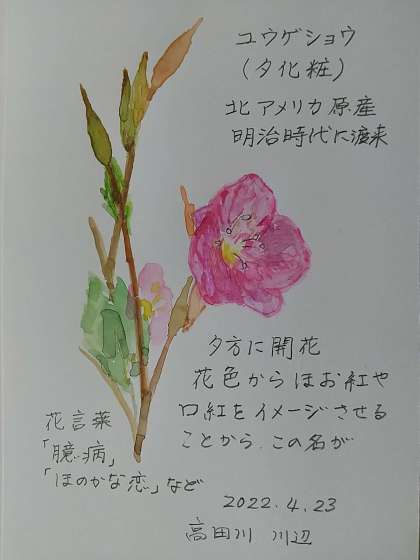 ユウゲショウ
(夕化粧)
北アメリカ原産
明治時代に渡来
夕方に開花
花色からほお紅や
口紅をイメージさせる
ことから、この名が
花言葉
「臆病」
「ほのかな恋」など
2022.4.23
高田川 川辺